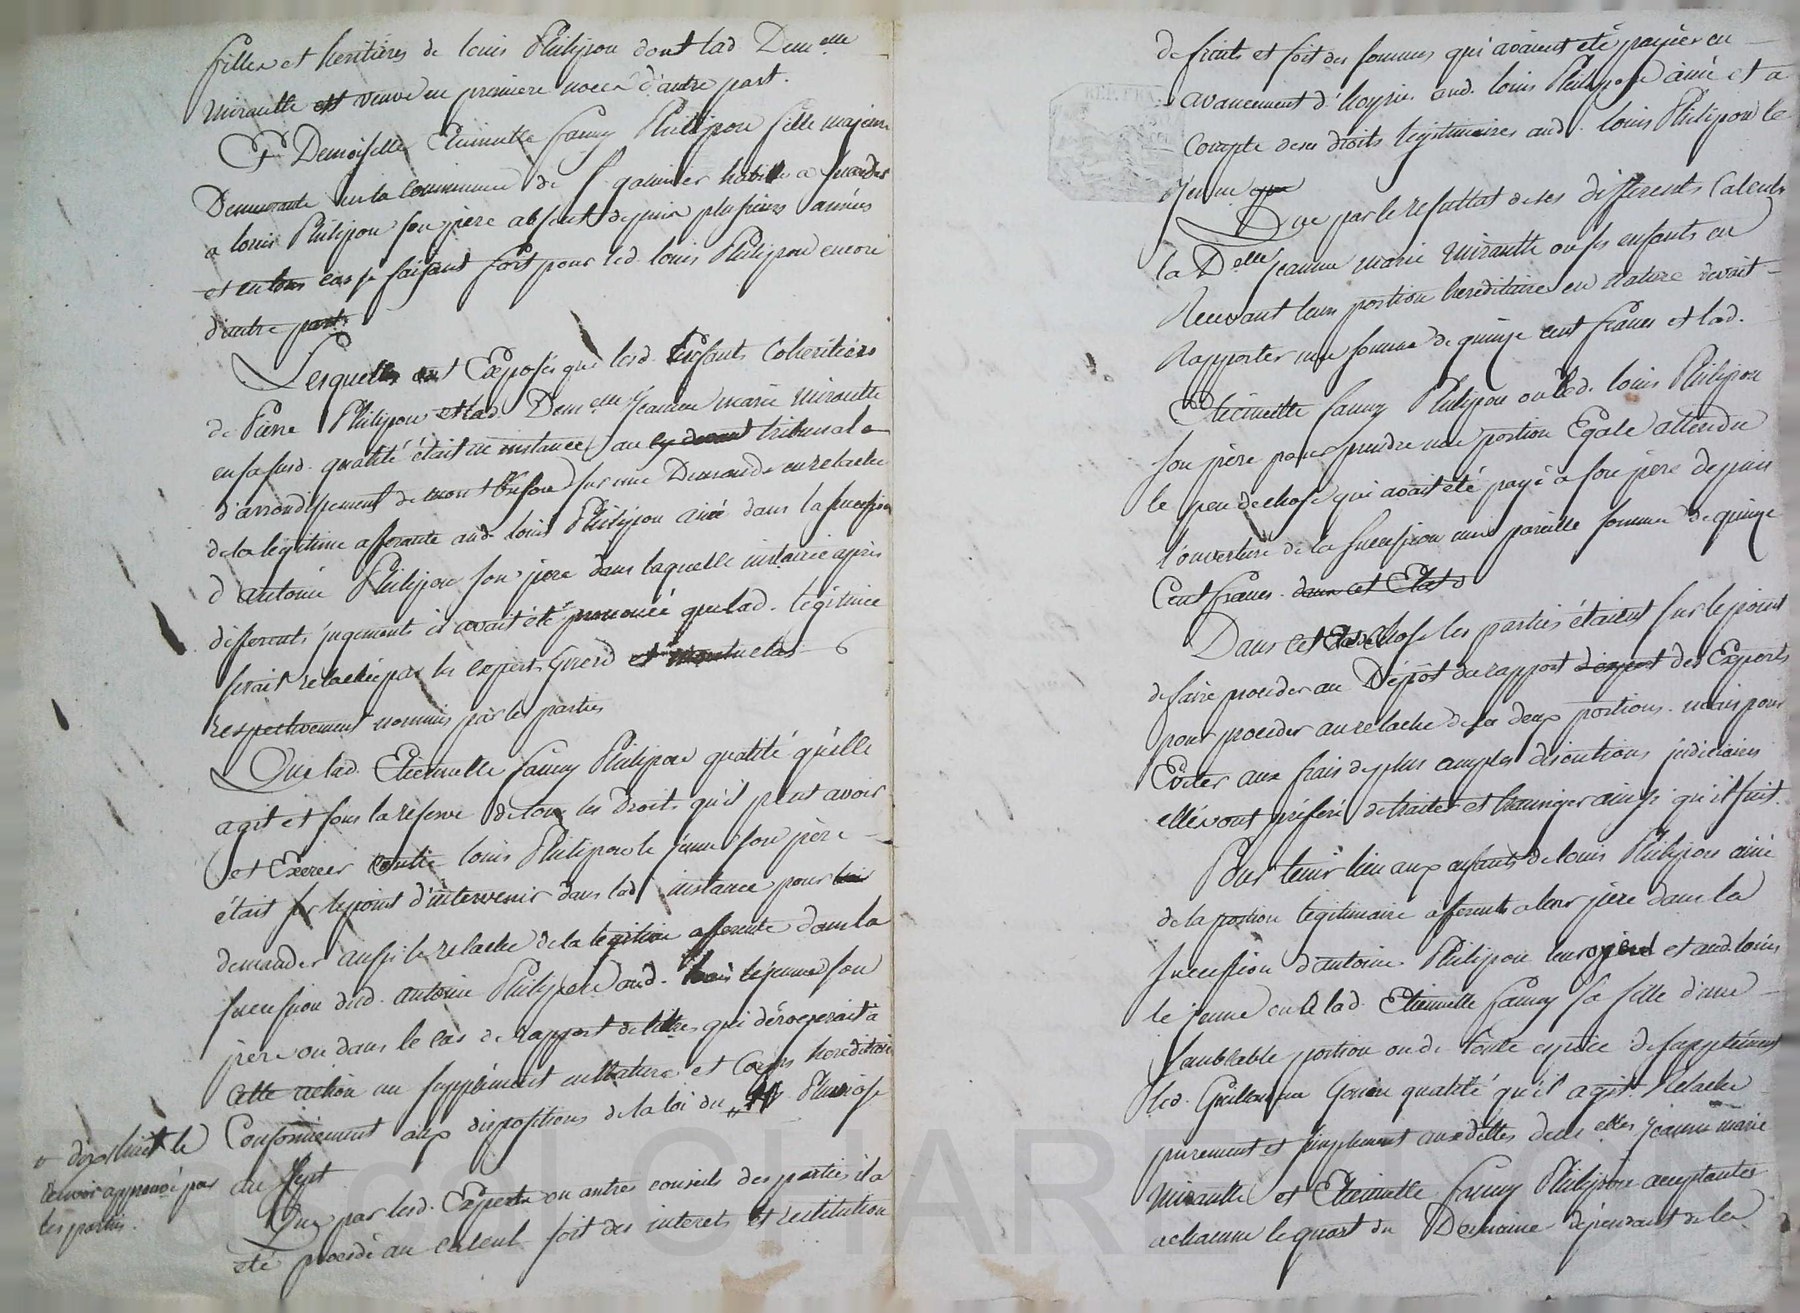 filles et heritières de louis Philipon dont lad Dem.elle
Mirautte est veuve en premiere noces d'autre part.
Et Demoiselle Etiennette fanny Philipon fille majeure
Demeurante en la commune de S.t galmier habille a succeder
a louis Philipon son père absent depuis plusieurs années
et en tous cas se faisant fort pour led. louis Philipon encore
d'autre part
Lesquelles ont Exposés que lesd. Enfants Coheritiers
de Pierre Philipon et lad Dem.elle Jeanne marie Mirautte
en sa susd. qualité était en instance au cy devant tribunal
d'arrondissement de mont Brison sur une Demande en relache
de la legitime afferante aud. louis Philipon ainé dans la succession
d'antoine Philipon son père dans laquelle instance après
differents jugements il avait été prononcé que lad. legitime
serait relachée par les experts
respectivement nommés par les parties
Que lad. Etiennette fanny Philipon qualité qu'elle
agit et sous la reserve de tous les Droits qu'il peut avoir
et Exercer contre louis Philipon le jeune son père
était sur le point d'intervenir dans lad instance pour
demander aussi le relache de la legitime afferente dans la
succession dud. antoine Philipon aud. louis le jeune son
père ou dans le cas de rapport de titres qui dérogerait à
cette action un supplément en Nature et Corps hereditaire
Conformément aux dispositions de la loi du Pluviose
an Sept
dix huit le
renvoi approuvé par
les parties.
Que par lesd. Experts ou autres conseils des parties il a
eté procedé au calcul soit des interets et restitution
de fruits et soit des sommes qui avaient été payées en
avancement d'hoyrie aud. louis Philipon ainé et a
Compte de ses droits legitimaires aud. louis Philipon le
jeune
REP. FRA
Que par le resultat de ses differents Calculs
la D.elle jeanne marie Mirautte ou ses enfants en
Recevant leur portion hereditaire en Nature devait
Rapporter une somme de quinze cent francs et lad.
Etiennette fanny Philipon ou led. louis Philipon
son père pour prendre une portion Egale attendu
le peu de chose qui avait été payé à son père depuis
l'ouverture de la succession une pareille somme de quinze
Cent francs. dans cet Etat
Dans cet Etat de Chose les parties étaient sur le point
de faire proceder au Dépot du rapport des Experts
pour proceder au relache de la deux portions. mais pour
Eviter aux frais de plus amples discutions judiciaires
elles ont préféré de traiter et transiger ainsi qu'il suit.
Pour tenir lieu aux enfants de louis Philipon ainé
de la portion legitimaire afferente a leur père dans la
succession d'antoine Philipon leur ayeul et aud. louis
le jeune ou a lad. Etiennette fanny sa fille d'une
semblable portion ou de toute espèce de supplément
led. Guillaume qualité qu'il agit Relache
purement et simplement auxdittes Dem.elles Jeanne marie
Mirautte et Etiennette fanny Philipon acceptantes
a chacune le quart du Domaine dépendant de la
CHARENTON